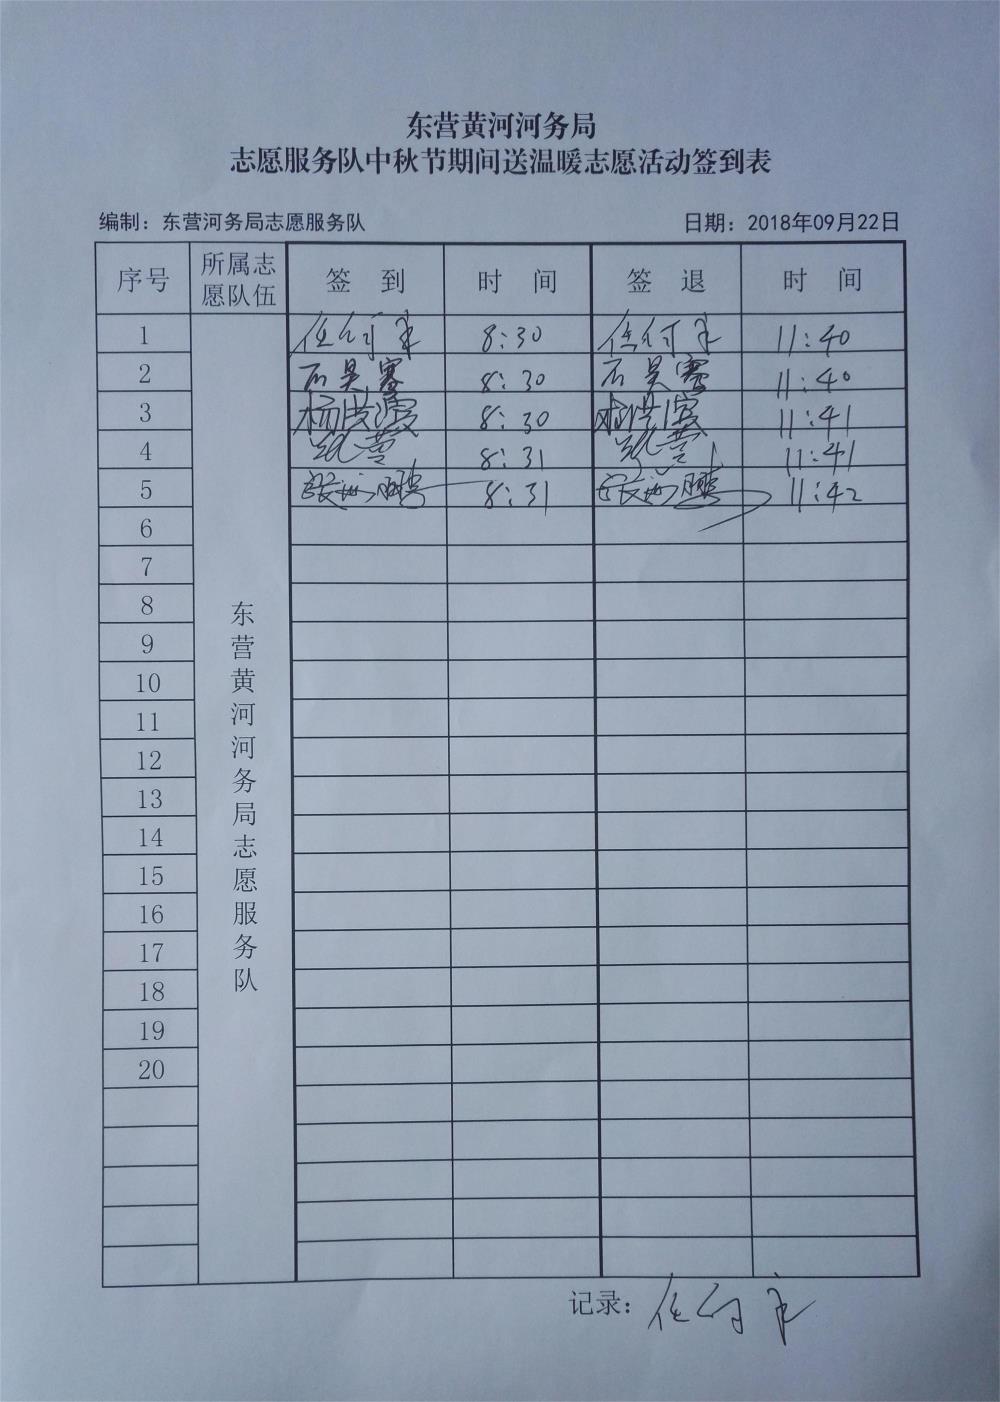 东营黄河河务局
志愿服务队中秋节期间送温暖志愿活动签到表
编制：东营河务局志愿服务队 日期：2018年09月22日
序号 所属志愿队伍 签 到 时 间 签 退 时 间
东营黄河河务局志愿服务队
1 8:30 11:40
2 石昊骞 8:30 石昊骞 11:40
3 杨洪霞 8:30 杨洪霞 11:41
4 8:31 11:41
5 8:31 11:42
6
7
8
9
10
11
12
13
14
15
16
17
18
19
20
记录：